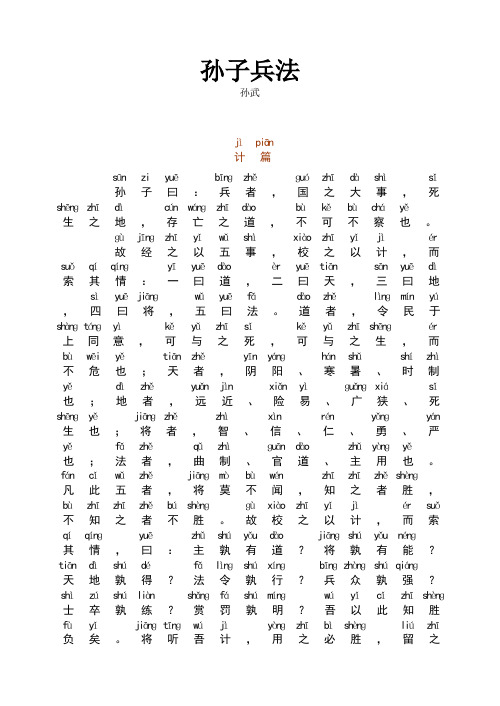 孙子兵法
孙武
jì piān
计 篇
sūn zi yuē bīng zhě guó zhī dà shì sǐ
孙 子 曰 ： 兵 者 ， 国 之 大 事 ， 死
shēng zhī dì cún wáng zhī dào bù kě bù chá yě
生 之 地 ， 存 亡 之 道 ， 不 可 不 察 也 。
gù jīng zhī yǐ wǔ shì xiào zhī yǐ jì ér
故 经 之 以 五 事 ， 校 之 以 计 ， 而
suǒ qí qíng yī yuē dào èr yuē tiān sān yuē dì
索 其 情 ： 一 曰 道 ， 二 曰 天 ， 三 曰 地
sì yuē jiāng wǔ yuē fǎ dào zhě lìng mín yú
， 四 曰 将 ， 五 曰 法 。 道 者 ， 令 民 于
shàng tóng yì kě yǔ zhī sǐ kě yǔ zhī shēng ér
上 同 意 ， 可 与 之 死 ， 可 与 之 生 ， 而
bù wēi yě tiān zhě yīn yáng hán shǔ shí zhì
不 危 也 ； 天 者 ， 阴 阳 、 寒 暑 、 时 制
yě dì zhě yuǎn jìn xiǎn yì guǎng xiá sǐ
也 ； 地 者 ， 远 近 、 险 易 、 广 狭 、 死
shēng yě jiāng zhě zhì xìn rén yǒng yán
生 也 ； 将 者 ， 智 、 信 、 仁 、 勇 、 严
yě fǎ zhě qū zhì guān dào zhǔ yòng yě
也 ； 法 者 ， 曲 制 、 官 道 、 主 用 也 。
fán cǐ wǔ zhě jiāng mò bù wén zhī zhī zhě shèng
凡 此 五 者 ， 将 莫 不 闻 ， 知 之 者 胜 ，
bù zhī zhī zhě bú shèng gù xiào zhī yǐ jì ér suǒ
不 知 之 者 不 胜 。 故 校 之 以 计 ， 而 索
qí qíng yuē zhǔ shú yǒu dào jiāng shú yǒu néng
其 情 ， 曰 ： 主 孰 有 道 ？ 将 孰 有 能 ？
tiān dì shú dé fǎ lìng shú xíng bīng zhòng shú qiáng
天 地 孰 得 ？ 法 令 孰 行 ？ 兵 众 孰 强 ？
shì zú shú liàn shǎng fá shú míng wú yǐ cǐ zhī shèng
士 卒 孰 练 ？ 赏 罚 孰 明 ？ 吾 以 此 知 胜
fù yǐ jiāng tīng wú jì yòng zhī bì shèng liú zhī
负 矣 。 将 听 吾 计 ， 用 之 必 胜 ， 留 之